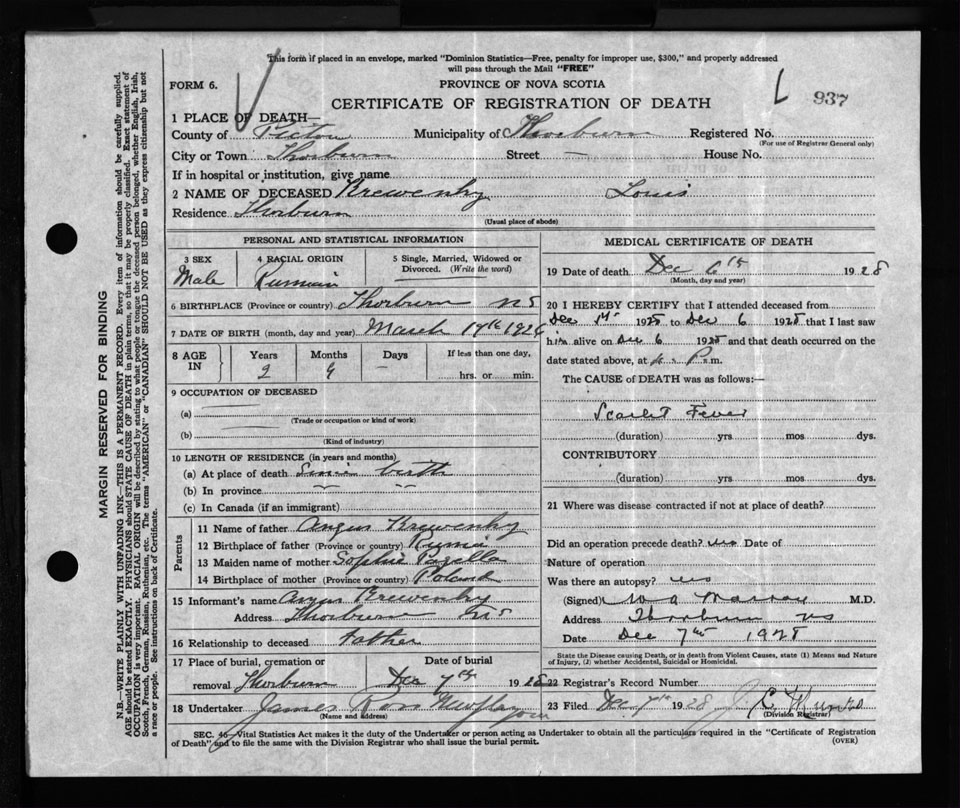 This form if placed in an envelope, marked "Dominion Statistics—Free, penalty for improper use, $300," and properly addressed
will pass through the Mail "FREE"
FORM 6.
PROVINCE OF NOVA SCOTIA
CERTIFICATE OF REGISTRATION OF DEATH
937
1 PLACE OF DEATH—
County of Pictou Municipality of Thorburn Registered No.
(For use of Registrar General only)
City or Town Thorburn Street — House No.
If in hospital or institution, give name
2 NAME OF DECEASED Brewenky Louis
Residence Thorburn
(Usual place of abode)
PERSONAL AND STATISTICAL INFORMATION
3 SEX 4 RACIAL ORIGIN 5 Single, Married, Widowed or
Divorced. (Write the word)
Male Russian
6 BIRTHPLACE (Province or country) Thorburn NS
7 DATE OF BIRTH (month, day and year) March 1926
8 AGE IN Years Months Days If less than one day,
2 9 — hrs. or min.
9 OCCUPATION OF DECEASED
(a)
(Trade or occupation or kind of work)
(b)
(Kind of industry)
10 LENGTH OF RESIDENCE (in years and months)
(a) At place of death Since birth
(b) In province
(c) In Canada (if an immigrant)
Parents
11 Name of father Angus Brewenky
12 Birthplace of father (Province or country) Russia
13 Maiden name of mother Sophie
14 Birthplace of mother (Province or country) Poland
15 Informant's name Angus Brewenky
Address Thorburn NS
16 Relationship to deceased Father
17 Place of burial, cremation or Date of burial
removal Thorburn Dec 7th 1928
18 Undertaker James Ross New Glasgow
(Name and address)
MEDICAL CERTIFICATE OF DEATH
19 Date of death Dec 6th 1928
(Month, day and year)
20 I HEREBY CERTIFY that I attended deceased from
Dec 1st 1928 to Dec 6 1928 that I last saw
him alive on Dec 6 1928 and that death occurred on the
date stated above, at P.m.
The CAUSE OF DEATH was as follows:—
Scarlet Fever
(duration) yrs mos dys.
CONTRIBUTORY
(duration) yrs mos dys.
21 Where was disease contracted if not at place of death?
Did an operation precede death? no Date of
Nature of operation
Was there an autopsy? no
(Signed) M.D.
Address Thorburn NS
Date Dec 7th 1928
State the Disease causing Death, or in death from Violent Causes, state (1) Means and Nature
of Injury, (2) whether Accidental, Suicidal or Homicidal.
22 Registrar's Record Number
23 Filed Dec 7th 1928
(Division Registrar)
SEC. 46, Vital Statistics Act makes it the duty of the Undertaker or person acting as Undertaker to obtain all the particulars required in the "Certificate of Registration
of Death" and to file the same with the Division Registrar who shall issue the burial permit.
(OVER)
MARGIN RESERVED FOR BINDING
N.B.—WRITE PLAINLY WITH UNFADING INK—THIS IS A PERMANENT RECORD. Every item of information should be carefully supplied.
AGE should be stated EXACTLY. PHYSICIANS should STATE CAUSE OF DEATH in plain terms, so that it may be properly classified. Exact statement of
OCCUPATION is very important. RACIAL ORIGIN will be described by stating to what people or tongue the deceased person belonged, whether English, Irish,
Scotch, French, German, Russian, Ruthenian, etc. The terms "AMERICAN" or "CANADIAN" SHOULD NOT BE USED as they express citizenship but not
a race or people. See instructions on back of Certificate.